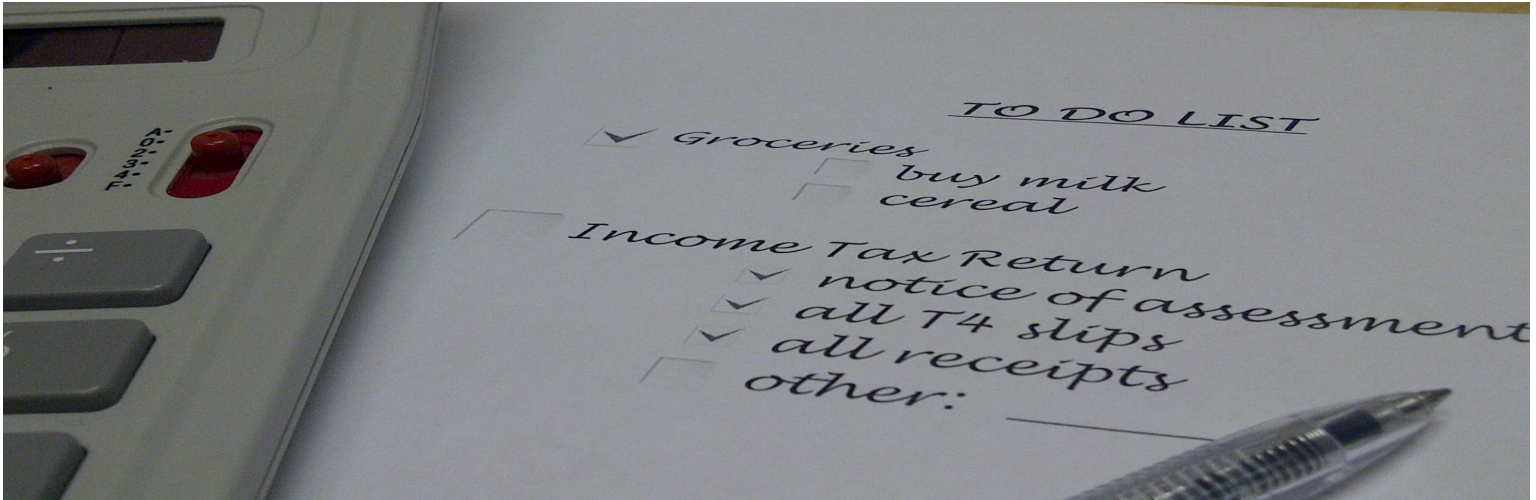 TO DO LIST
Groceries
buy milk
cereal
Income Tax Return
notice of assessment
all T4 slips
all receipts
other:
A 0 2 3 4 F
÷